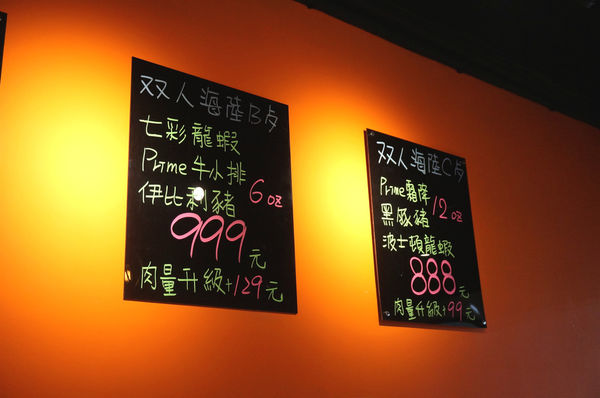 双人海陸B歺
七彩龍蝦
Prime牛小排
伊比利豬 6oz
999元
肉量升級+129元
双人海陸C歺
Prime霜降
黑豚豬 12oz
波士頓龍蝦
888元
肉量升級+99元